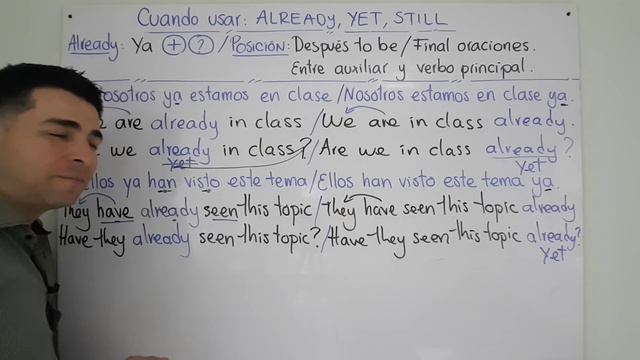 Cuando usar: ALREADY, YET, STILL
Already: Ya + ? / Posición: Después to be / Final oraciones.
Entre auxiliar y verbo principal.
osotros ya estamos en clase / Nosotros estamos en clase ya.
are already in class / We are in class already.
we already in class? / Are we in class already?
yet yet
Ellos ya han visto este tema / Ellos han visto este tema ya.
They have already seen this topic / They have seen this topic already
Have they already seen this topic? / Have they seen this topic already?
yet